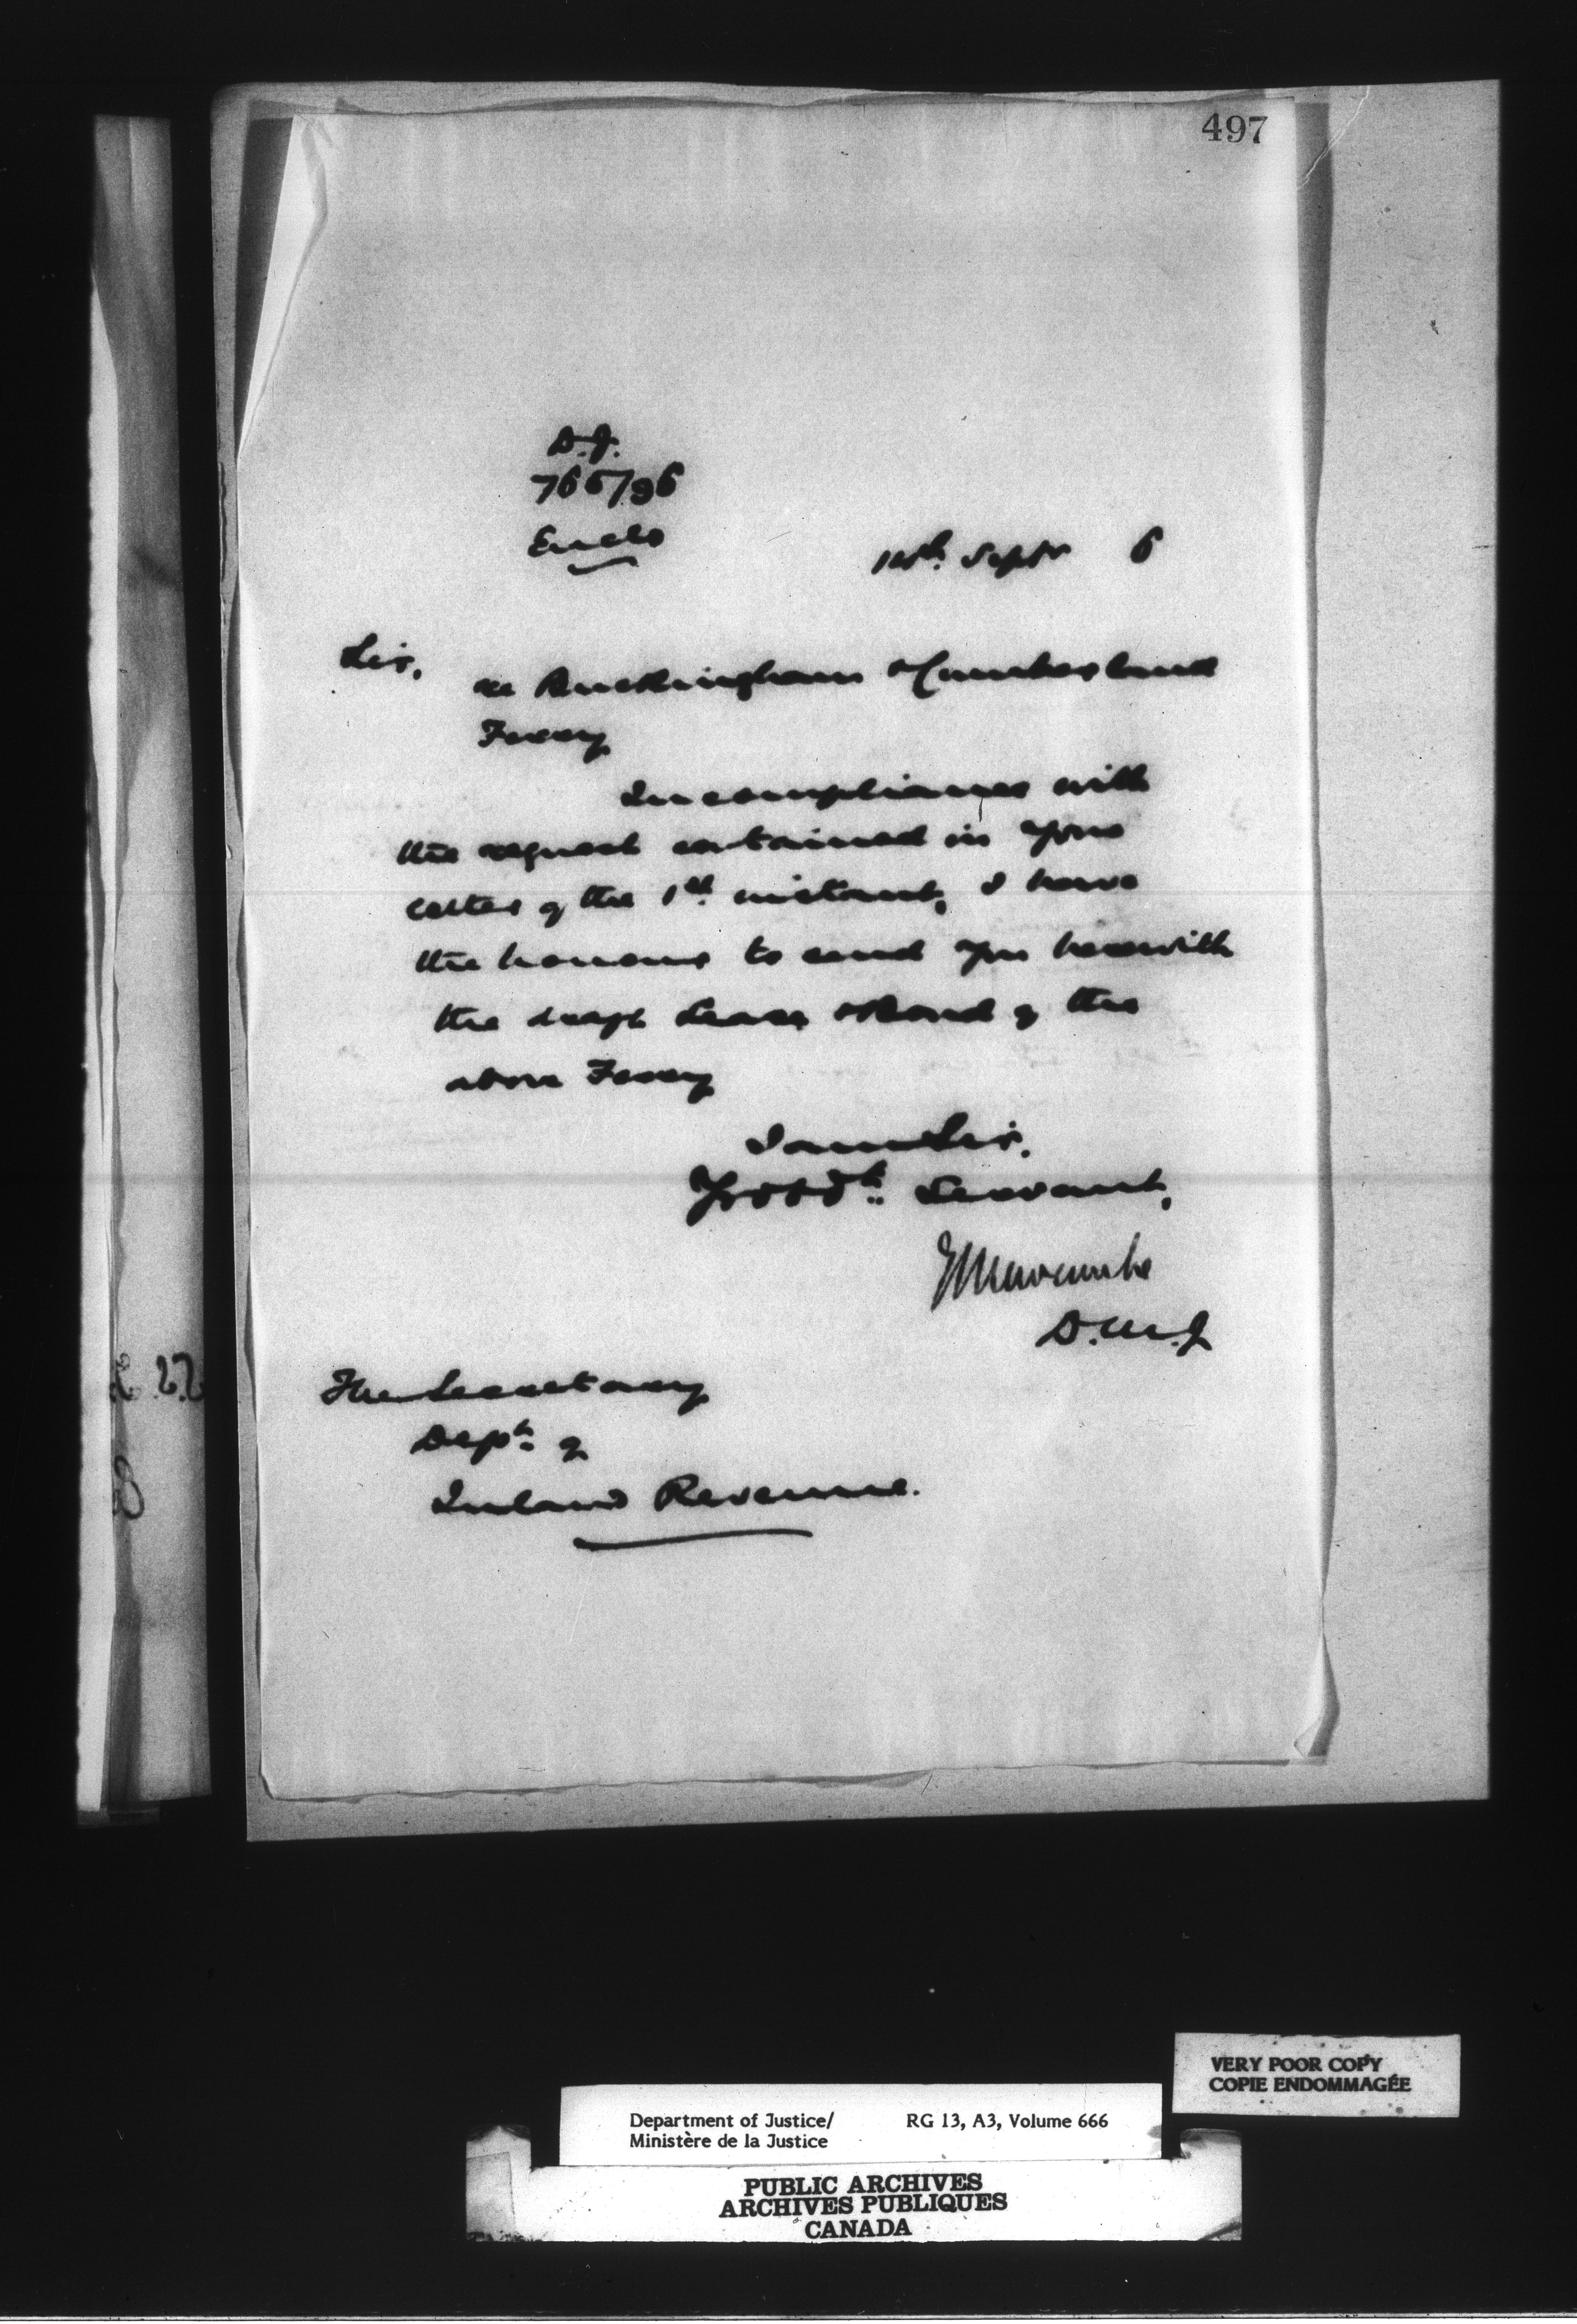 497
D.J.
765/96
Enclo
14th. Septr 6
Sir,
re Buckingham & Cumberland
Ferry
In compliance with
the request contained in your
letter of the 1st. instant, I have
the honour to send you herewith
the draft Lease & Bond of the
above Ferry
I am Sir,
Yr obdt. Servant,
E L Newcombe
D.M.J
The Secretary
Dept. of
Inland Revenue.
VERY POOR COPY
COPIE ENDOMMAGÉE
Department of Justice/ RG 13, A3, Volume 666
Ministère de la Justice
PUBLIC ARCHIVES
ARCHIVES PUBLIQUES
CANADA